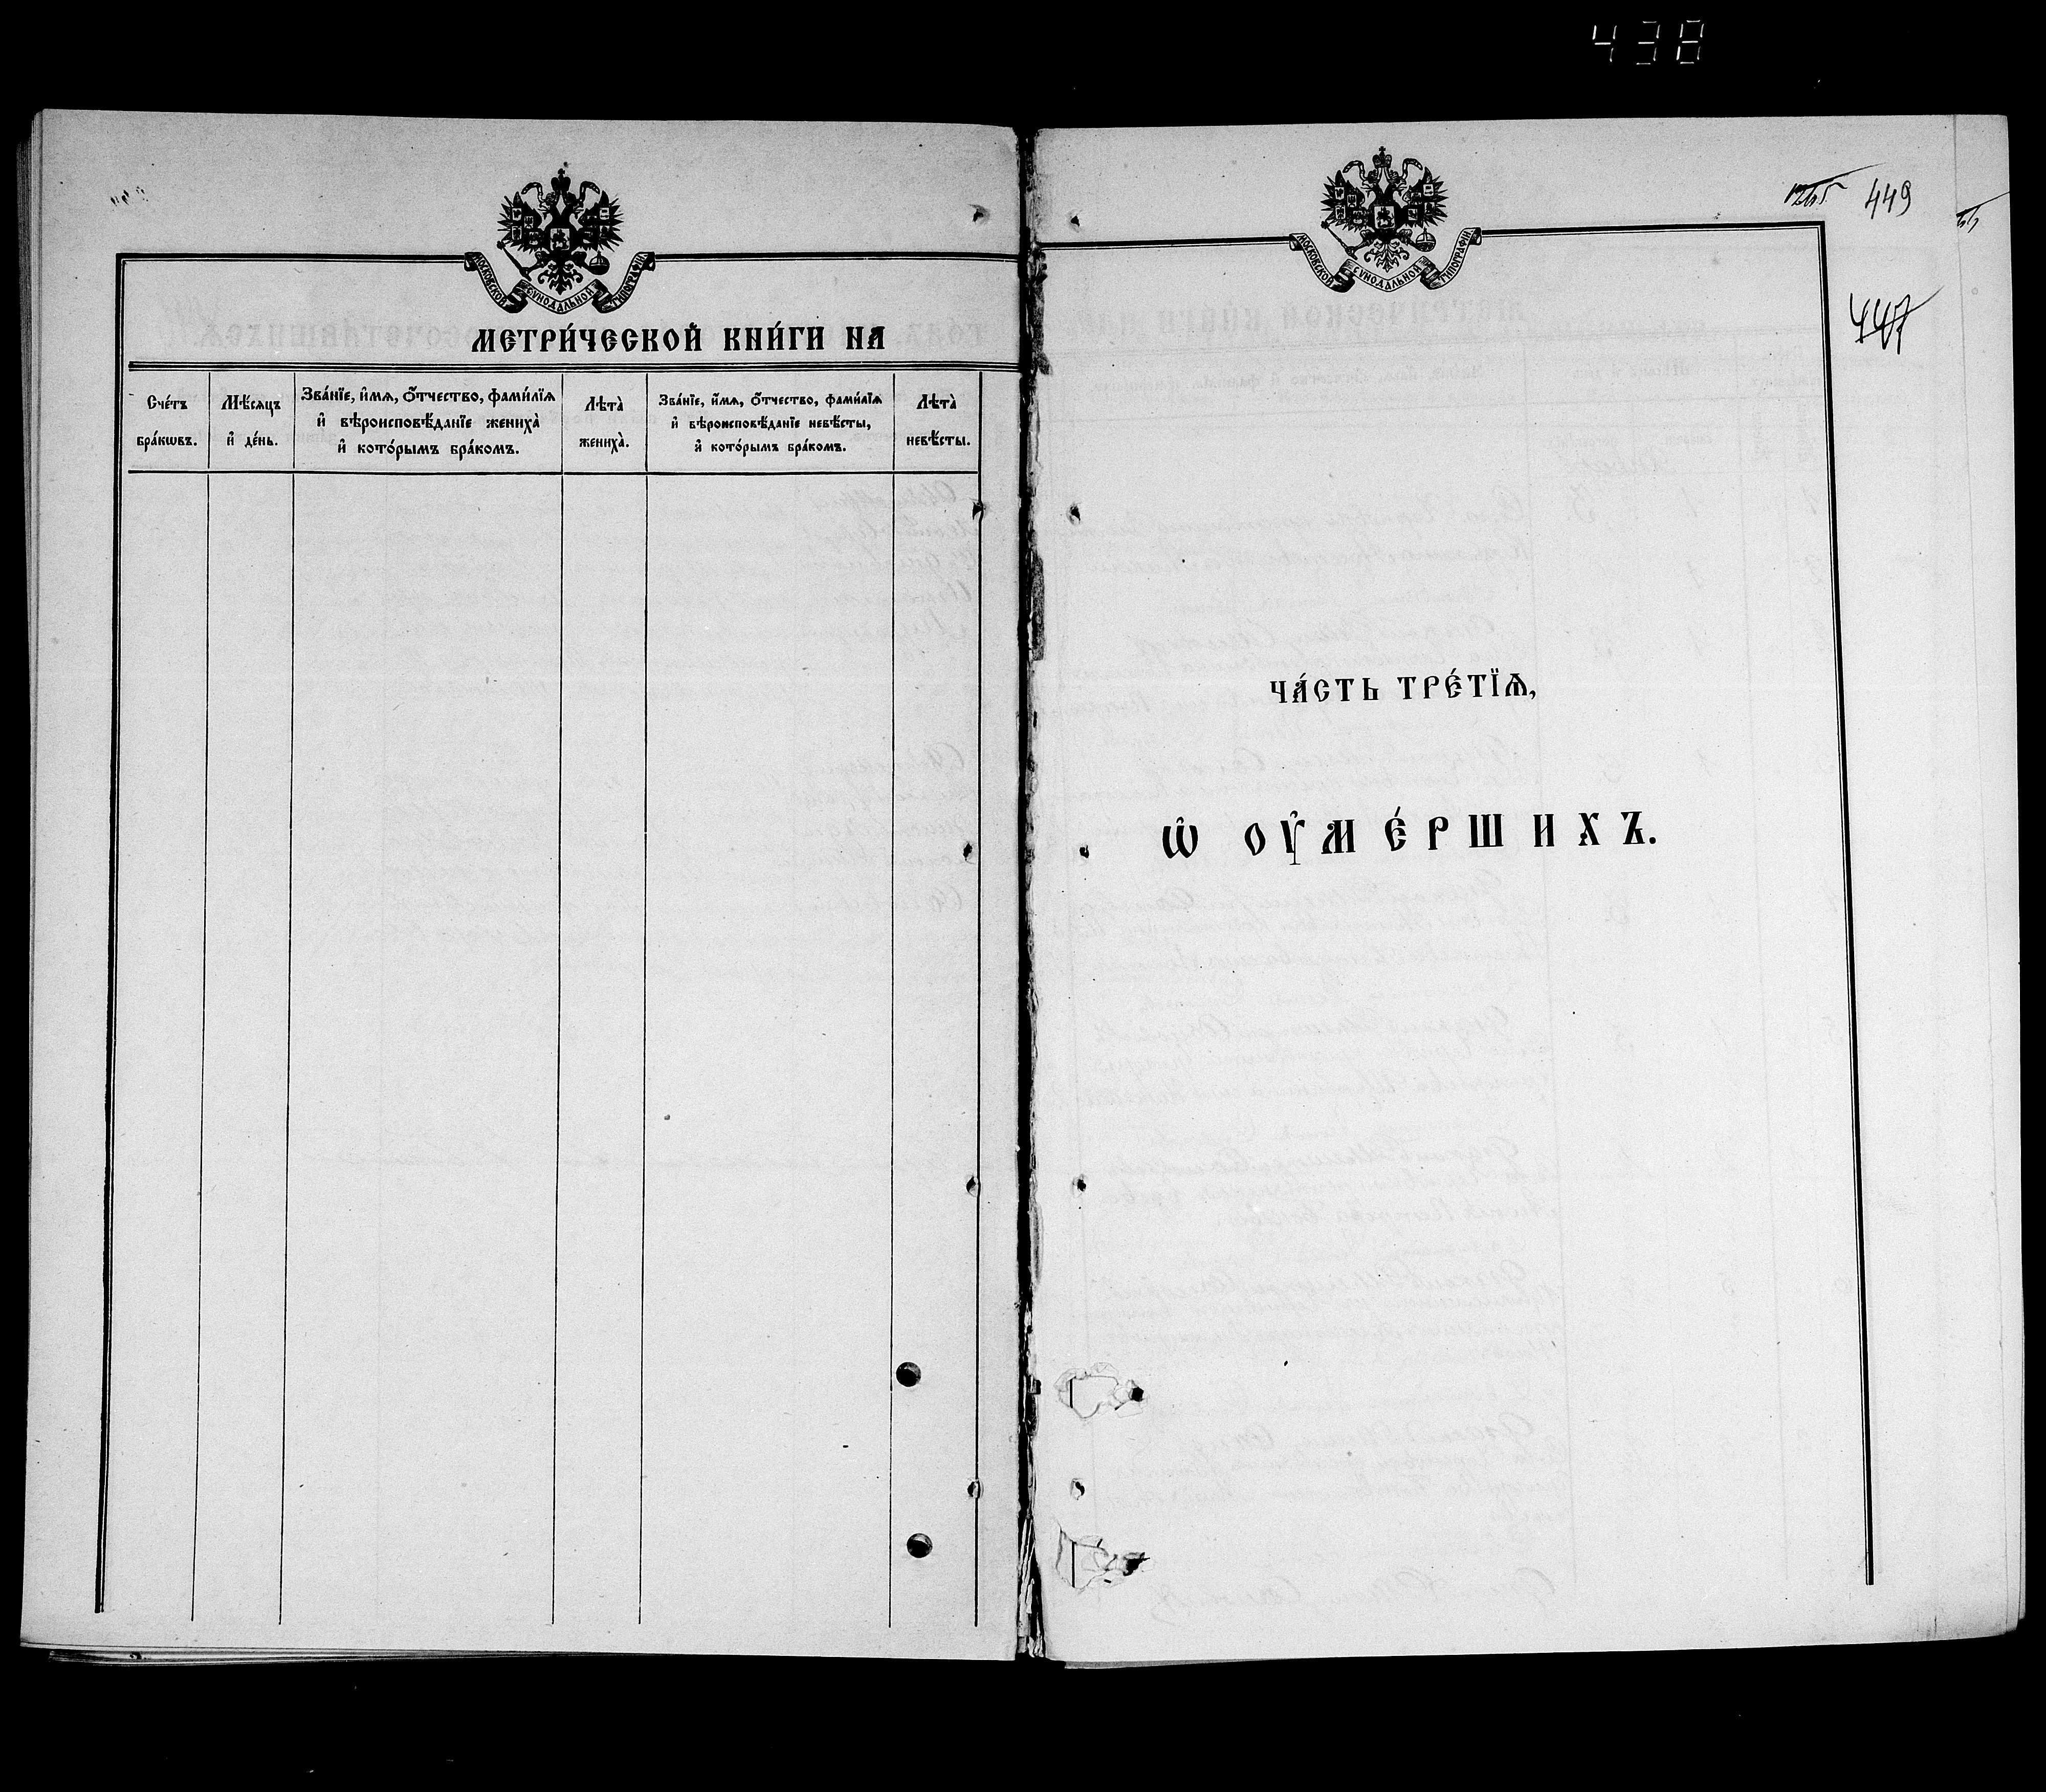 438
МОСКОВСКОЙ СѴНОДАЛЬНОЙ ТИПОГРАФІИ
МЕТРИ́ЧЕСКОЙ КНИ́ГИ НА
Сче́тъ бра́кѡвъ.
Мѣ́сяцъ и҆ де́нь.
Зва́нїе, и҆́мя, ѻ҆́тчество, фами́лїя
и҆ вѣроисповѣ́данїе жениха̀
и҆ кото́рымъ бра́комъ.
Лѣта̀ жениха̀.
Зва́нїе, и҆́мя, ѻ҆́тчество, фами́лїя
и҆ вѣроисповѣ́данїе невѣ́сты,
и҆ кото́рымъ бра́комъ.
Лѣта̀ невѣ́сты.
МОСКОВСКОЙ СѴНОДАЛЬНОЙ ТИПОГРАФІИ
449
447
ЧА́СТЬ ТРЕ́ТЇѦ,
Ѡ҆ ОУ҆МЕ́РШИХЪ.